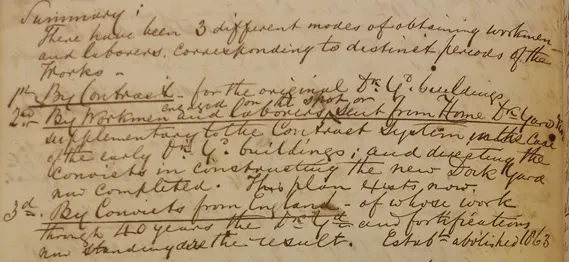 Summary:
There have been 3 different modes of obtaining workmen
and laborers, corresponding to distinct periods of the
Works -
1st. By Contract - for the original Dk Yd. buildings
engaged on the spot or
2nd. By Workmen and laborers sent from Home Dk Yard
supplementary to the Contract System, in the case
of the early Dk. Yd. buildings; and directing the
Convicts in constructing the new Dock Yard
now completed. This plan exists now.
3d. By Convicts from England - of whose work
through 40 years the Dk Yd - and fortifications
now standing are the result. Estabt abolished 1863